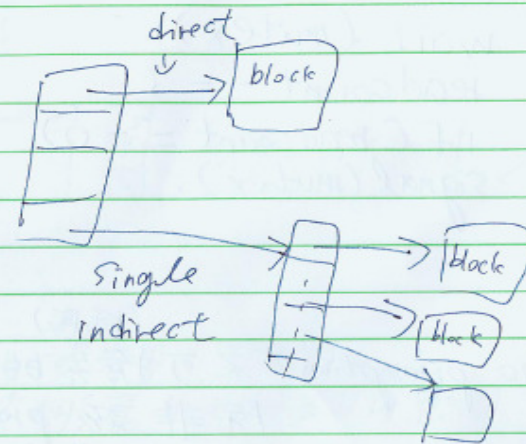 direct
block
single
indirect
block
block